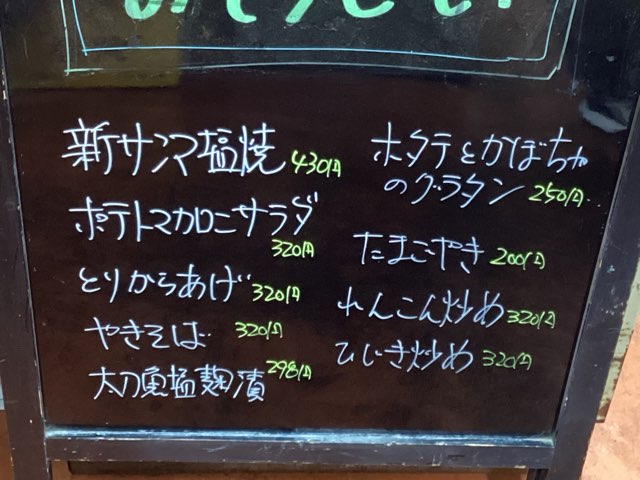 新サンマ塩焼 430円
ポテトマカロニサラダ
320円
とりからあげ 320円
やきそば 320円
太刀魚塩麹漬 298円
ホタテとかぼちゃ
のグラタン 250円
たまごやき 200円
れんこん炒め 320円
ひじき炒め 320円